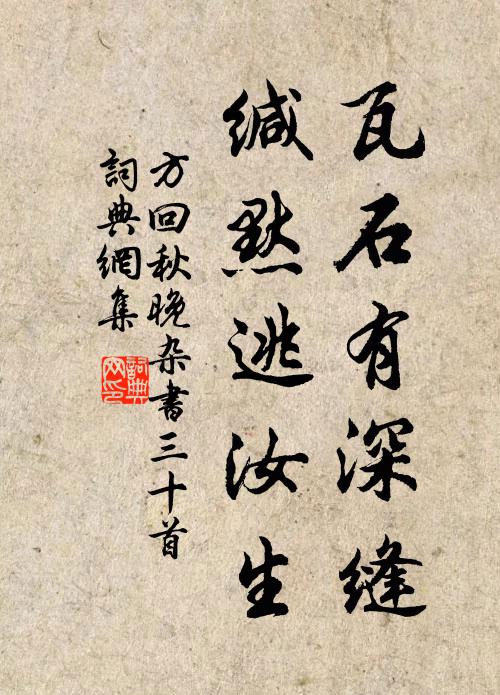 瓦石有深缝
缄默逃汝生
方回秋晚杂书三十首
詞典網集
詞典网印